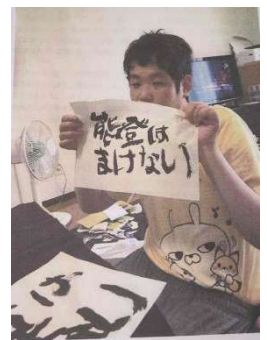 能登は
まけない